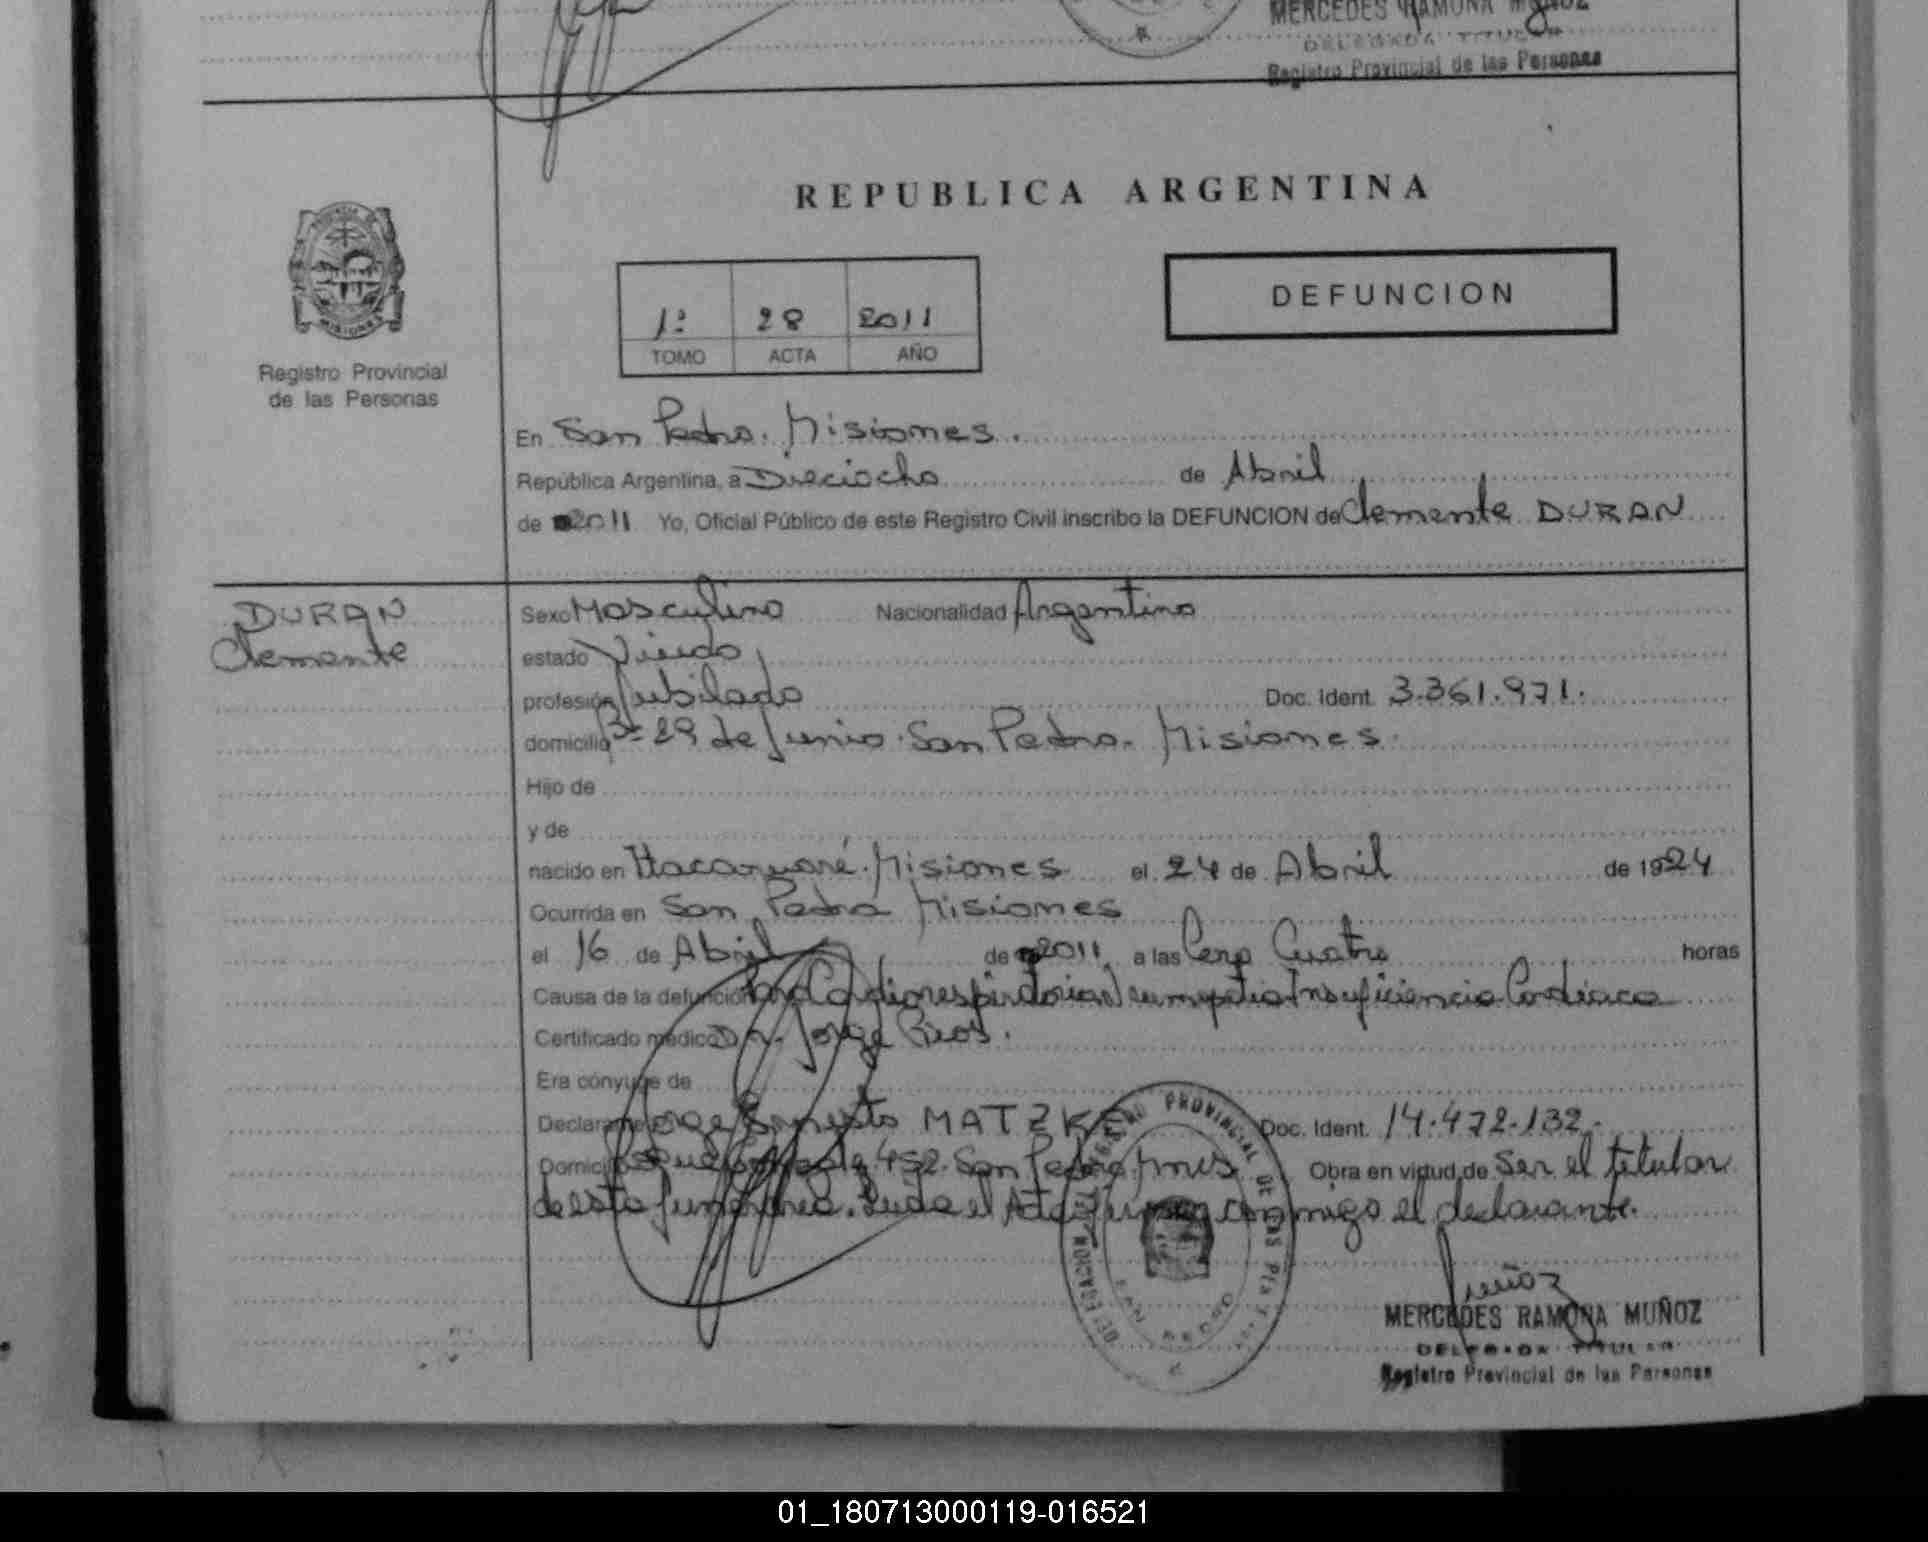 MERCEDES RAMONA MUÑOZ
DELEGADA TITULAR
Registro Provincial de las Personas
REPUBLICA ARGENTINA
1º 28 2011
TOMO ACTA AÑO
DEFUNCION
MISIONES
Registro Provincial
de las Personas
En San Pedro. Misiones.
República Argentina, a Dieciocho de Abril
de 2011 Yo, Oficial Público de este Registro Civil inscribo la DEFUNCION de Clemente DURAN
DURAN
Clemente
Sexo Masculino Nacionalidad Argentino
estado Viudo
profesión Jubilado Doc. Ident. 3.361.971.
domicilio Bº 29 de Junio. San Pedro. Misiones.
Hijo de
y de
nacido en Itacaruaré. Misiones el 24 de Abril de 1924
Ocurrida en San Pedro Misiones
el 16 de Abril de 2011 a las Cero Cuatro horas
Causa de la defunción Paro Cardiorespiratorio Insuficiencia Cardiaca
Certificado médico Dr. Jorge Rios.
Era cónyuge de
Declarante Jorge Ernesto MATZKE Doc. Ident. 14.472.132.
Domicilio 452. San Pedro. Mnes Obra en virtud de Ser el titular
de esta funeraria. Leida el Acta firma conmigo el declarante.
REGISTRO PROVINCIAL DE LAS
DELEGACION
SAN PEDRO
Muñoz
MERCEDES RAMONA MUÑOZ
DELEGADA TITULAR
Registro Provincial de las Personas
01_180713000119-016521